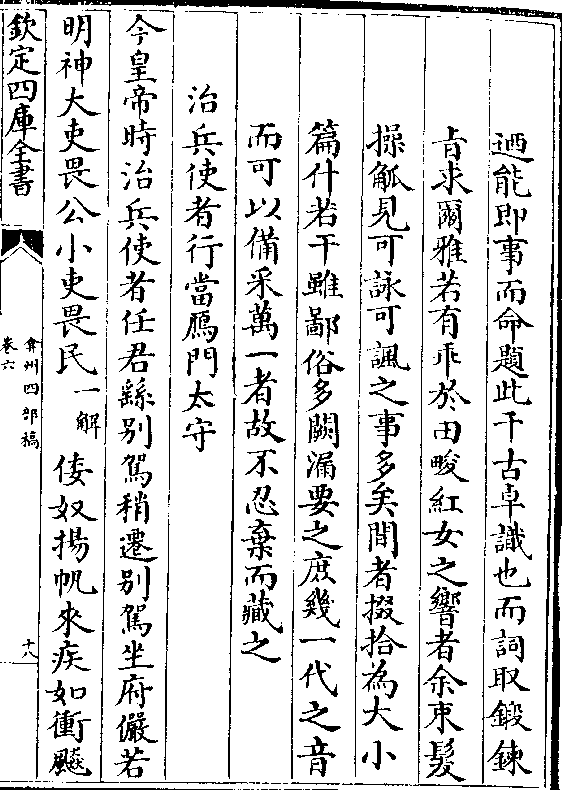 迺能即事而命題此千古卓識也而詞取鍛鍊
旨求爾雅若有乖於田畯紅女之響者余束髮
操觚見可詠可諷之事多矣間者掇拾為大小
篇什若干雖鄙俗多闕漏要之庶幾一代之音
而可以備采萬一者故不忍棄而藏之
治兵使者行當鴈門太守
今皇帝時治兵使者任君繇别駕稍遷别駕坐府儼若
明神大吏畏公小吏畏民 一解 倭奴揚帆來疾如衝飈
欽定四庫全書
弇州四部稿
卷六
十八